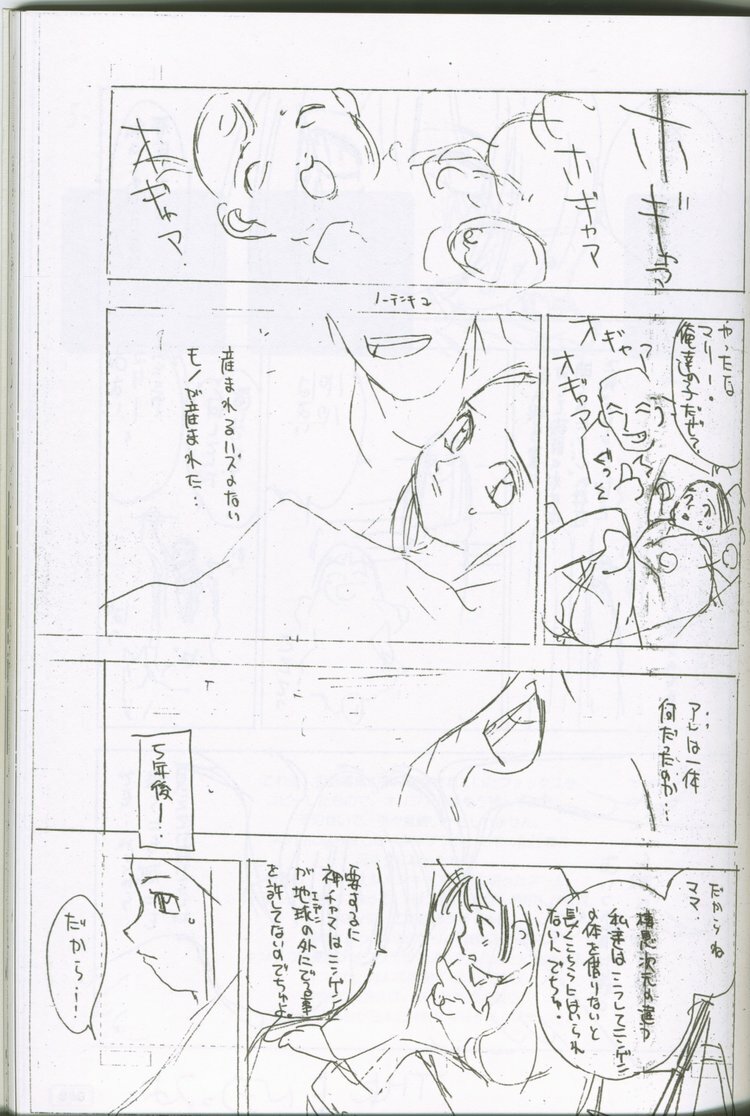 ホギャマ
ホギャマ
オギャマ
やったな
マリー。
俺達の子だぜ
オギャマ
オギャマ
ぐっ
ノーテンキユ
産まれるハズのない
モノが産まれた…
アレは一体
何だったのか…
5年後ー…
だからね
ママ、
棲息次元の違う
私達はこうしてニンゲン
の体を借りないと
長くこちらにはいられ
ないんでちゅ!
要するに
神チャマはニンゲン
が地球の外にでる事
エデン
を許してないのでちゅよ。
だから…!